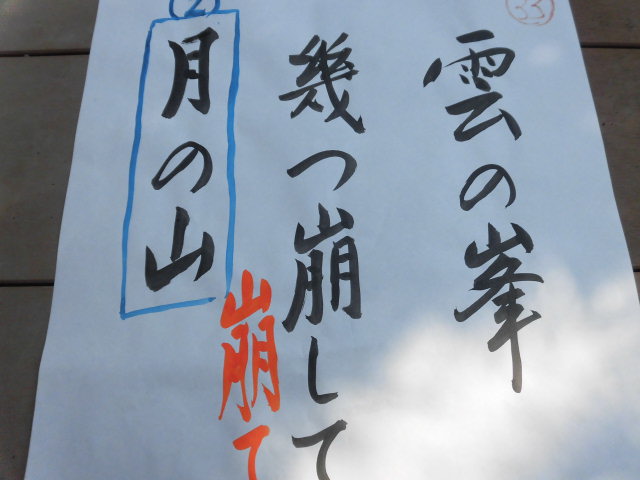 33
雲の峯
幾つ崩して
崩て
2
月の山